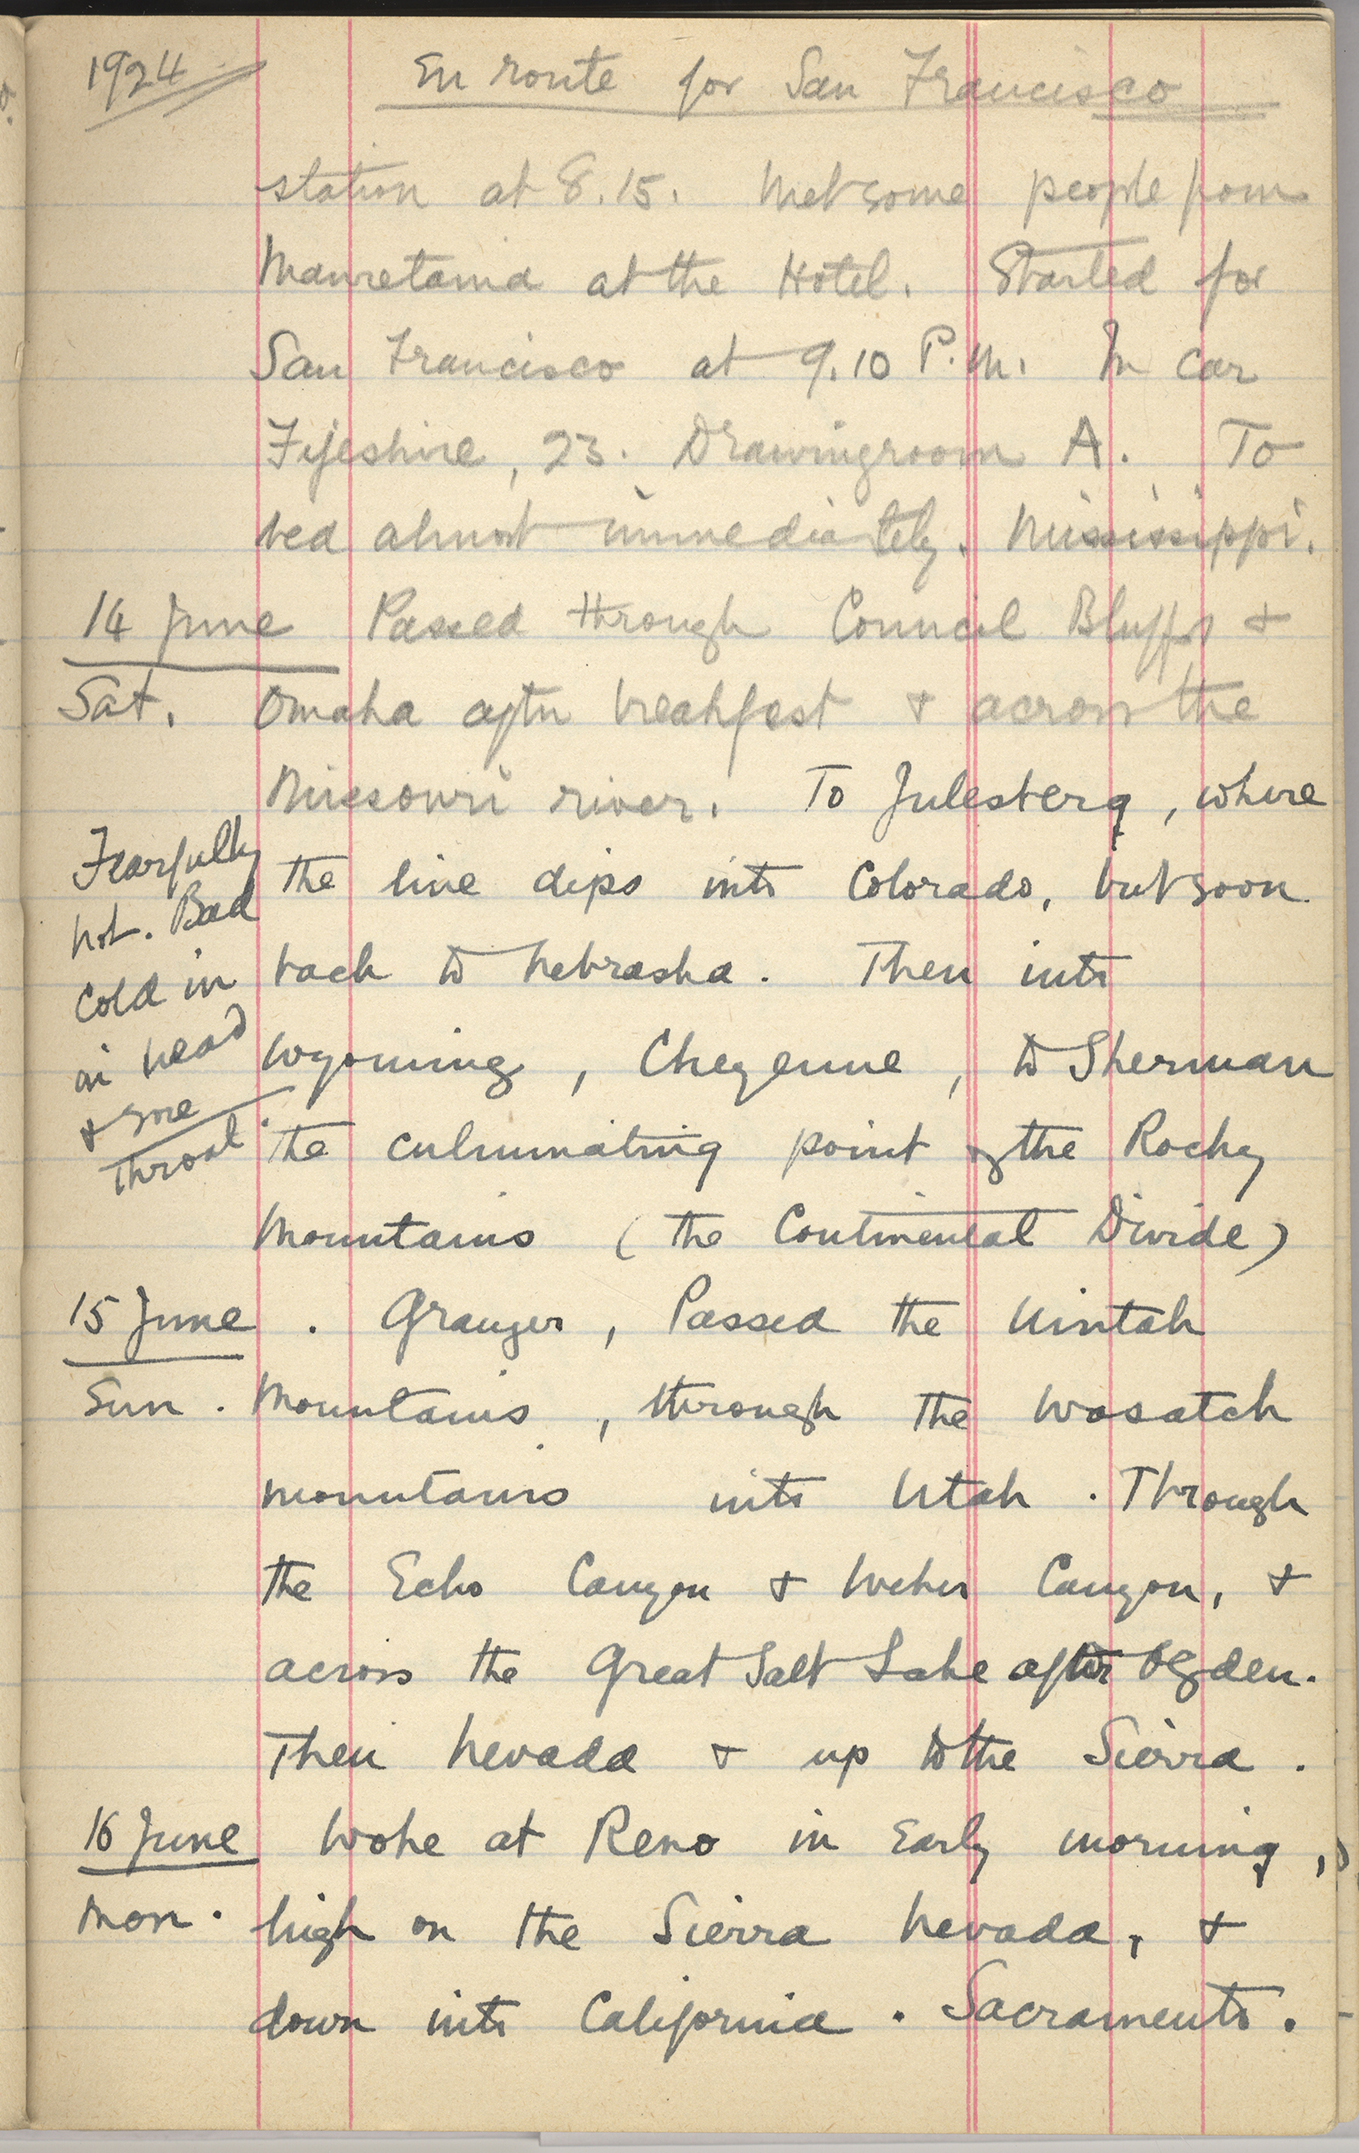 1924
En route for San Francisco
station at 8.15. Met some people from
Mauretania at the Hotel. Started for
San Francisco at 9.10 P.M. In car
Fifeshire, 23. Drawingroom A. To
bed almost immediately. Mississippi.
14 June Passed through Council Bluffs &
Sat. Omaha after breakfast & across the
Missouri river. To Julesberg, where
the line dips into Colorado, but soon
back to Nebraska. Then into
Wyoming, Cheyenne, to Sherman
the culminating point of the Rocky
Mountains (the Continental Divide)
Fearfully
hot. Bad
cold in
in head
& sore
throat.
15 June . Granger, Passed the Uintah
Sun. Mountains, through the Wasatch
mountains into Utah. Through
the Echo Canyon & Weber Canyon, &
across the Great Salt Lake after Ogden.
Then Nevada & up to the Sierra.
16 June Woke at Reno in Early morning,
Mon. high on the Sierra Nevada, &
down into California. Sacramento.